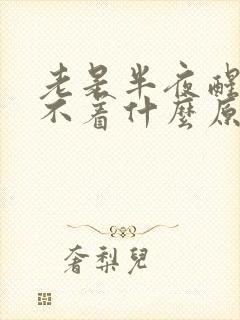 老是半夜醒
不着什麼原
奢梨兒